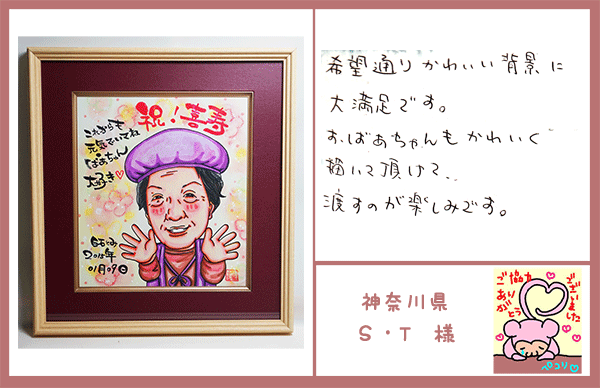 祝!喜寿
これからも
元気でいてね
ばあちゃん
大好き♡
2015年
01月09日
希望通りかわいい背景に
大満足です。
おばあちゃんもかわいく
描いて頂けて、、
渡すのが楽しみです。
神奈川県
S・T 様
ご協力
ありがとう
ございました
ペコリ♡